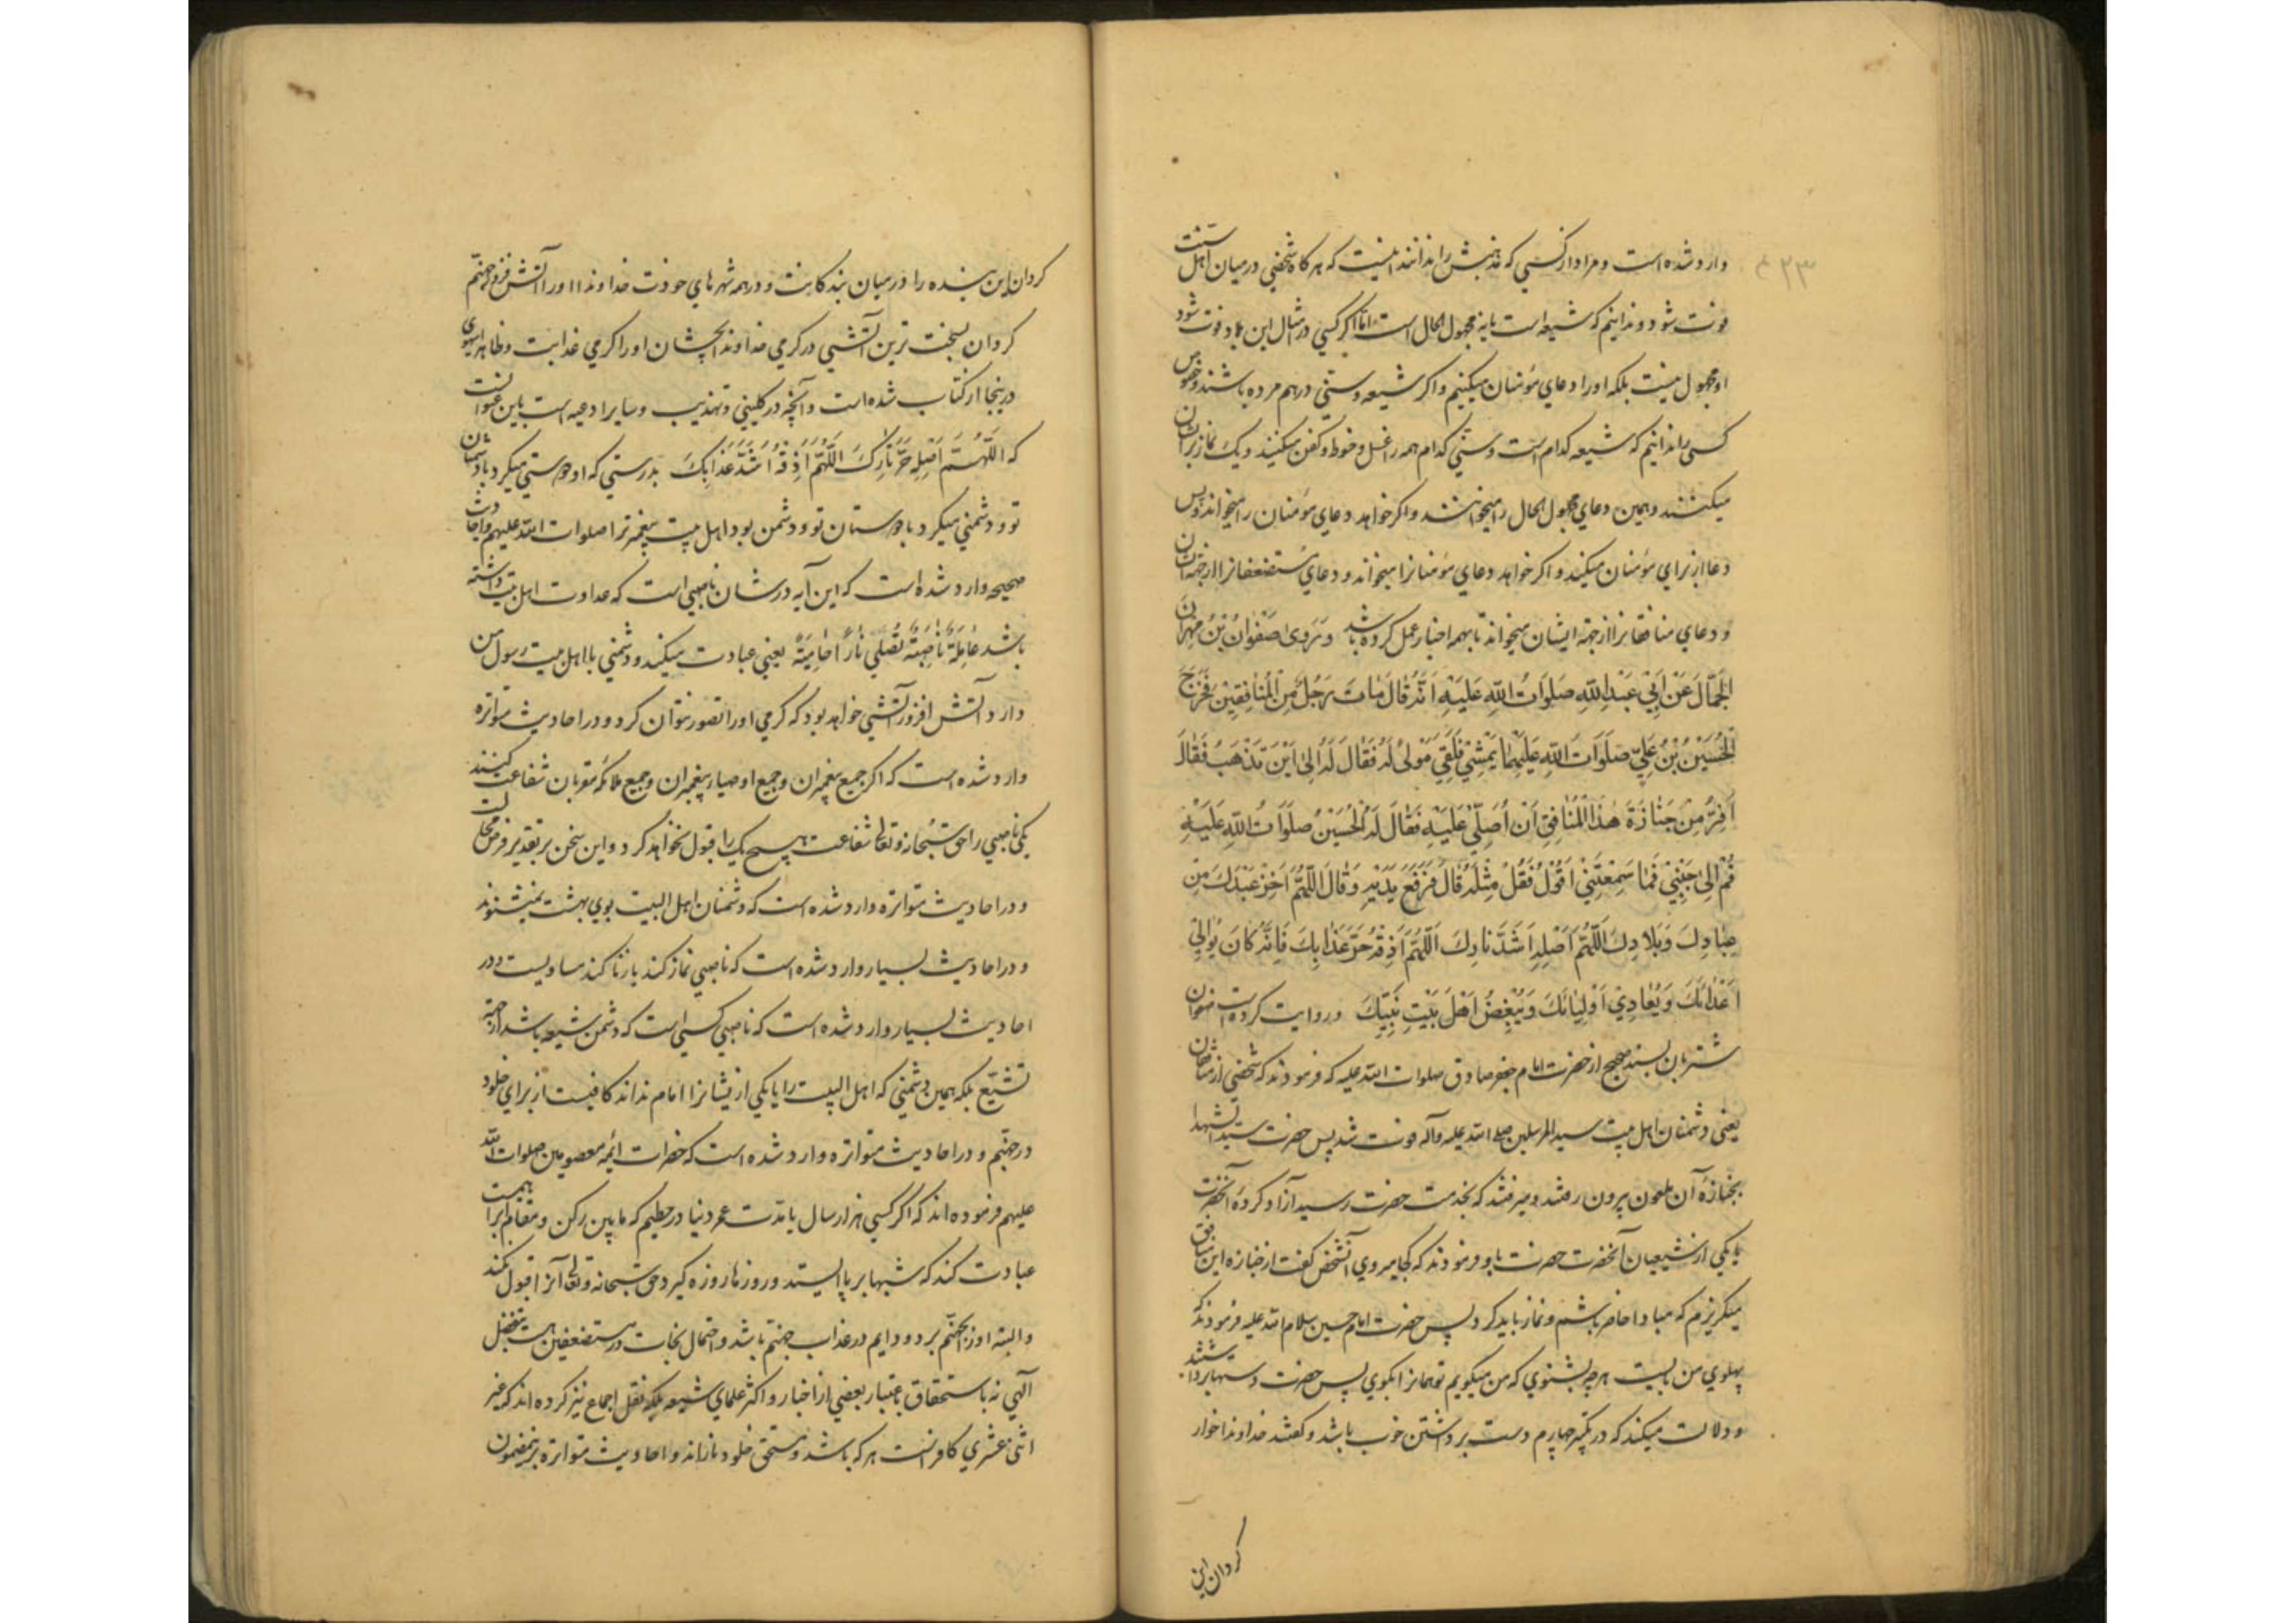 وارد شده است و مراد از کسی که مذهبش را ندانند اینست که هر کاه شخصی در میان اهل سنت
فوت شود و ندانیم که شیعه است یا نه مجهول الحال است اما اکر کسی در مثال این بلاد فوت شود
او مجهول نیست بلکه او را دعای مؤمنان میکنیم و اکر شیعه و سنی درهم مرده باشند و خصوص
کسی را ندانیم که شیعه کدام است و سنی کدام همه را غسل و حنوط و کفن میکنند و یک نماز بر ایشان
میکنند و همین دعای مجهول الحال را میخوانند و اکر خواهد دعای مؤمنان را میخواند و پس
دعا از برای مؤمنان میکنند و اکر خواهد دعای مؤمنانرا میخواند و دعای مستضعفانرا از جهة ایشان
و دعای منافقانرا از جهة ایشان میخواند تا بهمه اخبار عمل کرده باشد وَ رَوی صَفْوانُ بْنُ مِهْرانَ
الْجَمّالَ عَنْ اَبِیْ عَبْدِاللّهِ صَلَوَاتُ اللّهِ عَلَیْهِ اَنَّهُ قَالَ مَاتَ رَجُلٌ مِنَ الْمُنَافِقِیْنَ فَخَرَجَ
الْحُسَیْنُ بْنُ عَلِیٍّ صَلَوَاتُ اللّهِ عَلَیْهِمَا یَمْشِیْ فَلَقِیَ مَوْلیً لَهُ فَقَالَ لَهُ اِلیٰ اَیْنَ تَذْهَبُ فَقَالَ
اَفِرُّ مِنْ جَنَازَةِ هٰذَا الْمُنَافِقِ اَنْ اُصَلِّیَ عَلَیْهِ فَقَالَ لَهُ الْحُسَیْنُ صَلَوَاتُ اللّهِ عَلَیْهِ
قُمْ اِلیٰ جَنْبِیْ فَمَا سَمِعْتَنِیْ اَقُوْلُ فَقُلْ مِثْلَهُ قَالَ فَرَفَعَ یَدَیْهِ وَ قَالَ اَللّهُمَّ اَخْزِ عَبْدَكَ مِنْ
عِبَادِكَ وَ بَلَادِكَ اَللّهُمَّ اَصْلِهِ اَشَدَّ نَارِكَ اَللّهُمَّ اَذِقْهُ حَرَّ عَذَابِكَ فَاِنَّهُ كَانَ یُوَالِیْ
اَعْدَائَكَ وَ یُعَادِیْ اَوْلِیَائَكَ وَ یُبْغِضُ اَهْلَ بَیْتِ نَبِیِّكَ و روایت کرده است صفوان
شتربان بسند صحیح از حضرت امام جعفر صادق صلوات الله علیه که فرمودند که شخصی از منافقان
یعنی دشمنان اهل بیت سید المرسلین صلی الله علیه وآله فوت شد پس حضرت سید الشهدا
بجنازه آن ملعون بیرون رفتند و میرفتند که بخدمت حضرت رسید آزاد کرده آنحضرت
یا یکی از شیعیان آنحضرت حضرت باو فرمودند که کجا میروی آنشخص کفت از جنازه این منافق
میکریزم که مبادا حاضر باشم و نماز باید کرد پس حضرت امام حسین سلام الله علیه فرمودند که
پهلوی من بایست هر چه بشنوی که من میکویم تو همانرا بکوی پس حضرت دستها برداشتند
و دلالت میکند که در تکبیر چهارم دست برداشتن خوب باشد و کفتند خداوندا خوار
کردان این
کردان این بنده را در میان بندکانت و در همه شهرهای خودت خداوندا او را آتش فروز جهنم
کردان بسخت ترین آتشی در کرمی خداوندا بچشان او را کرمی عذابت و ظاهرا سهوی
درینجا از کتاب شده است و آنچه در کلینی و تهذیب و سایر ادعیه است باین عنوانست
که اَللّهُمَّ اَصْلِهِ حَرَّ نَارِكَ اَللّهُمَّ اَذِقْهُ اَشَدَّ عَذَابِكَ بدرستی که او دوستی میکرد با دشمنان
تو و دشمنی میکرد با دوستان تو و دشمن بود اهل بیت پیغمبر ترا صلوات الله علیهم و احادیث
صحیحه وارد شده است که این آیه در شان ناصبی است که عداوت اهل بیت داشته
باشد عَامِلَةٌ نَاصِبَةٌ تَصْلیٰ نَارًا حَامِیَةً یعنی عبادت میکند و دشمنی با اهل بیت رسول من
دارد آتش افروز آتشی خواهد بود که کرمی او را تصور نتوان کرد و در احادیث متواتره
وارد شده است که اکر جمیع پیغمبران و جمیع اوصیاء پیغمبران و جمیع ملائکه مقربان شفاعت کنند
یکی ناصبی را حق سبحانه و تعالی شفاعت هیچ یک را قبول نخواهد کرد و این سخن بر تقدیر فرض محال است
و در احادیث متواتره وارد شده است که دشمنان اهل البیت بوی بهشت نمیشنوند
و در احادیث بسیار وارد شده است که ناصبی نماز کند یا زنا کند مساویست و در
احادیث بسیار وارد شده است که ناصبی کسی است که دشمن شیعه باشد از جهة
تشیّع بلکه همین دشمنی که اهل البیت را یا یکی از ایشانرا امام نداند کافیست از برای خلود
در جهنم و در احادیث متواتره وارد شده است که حضرات ائمه معصومین صلوات الله
علیهم فرموده اند که اکر کسی هزار سال یا مدت عمر دنیا در حطیم که مابین رکن و مقام ابراهیمست
عبادت کند که شبها بر پا ایستد و روزها روزه کیرد حق سبحانه و تعالی آنرا قبول نکند
و البته او را بجهنم برد و دایم در عذاب جهنم باشد و احتمال نجات در مستضعفین هست بتفضل
آلهی نه باستحقاق باعتبار بعضی از اخبار و اکثر علمای شیعه بلکه نقل اجماع نیز کرده اند که غیر
اثنی عشری کافر است هر که باشد و مستحق خلود نارند و احادیث متواتره برینمضمون